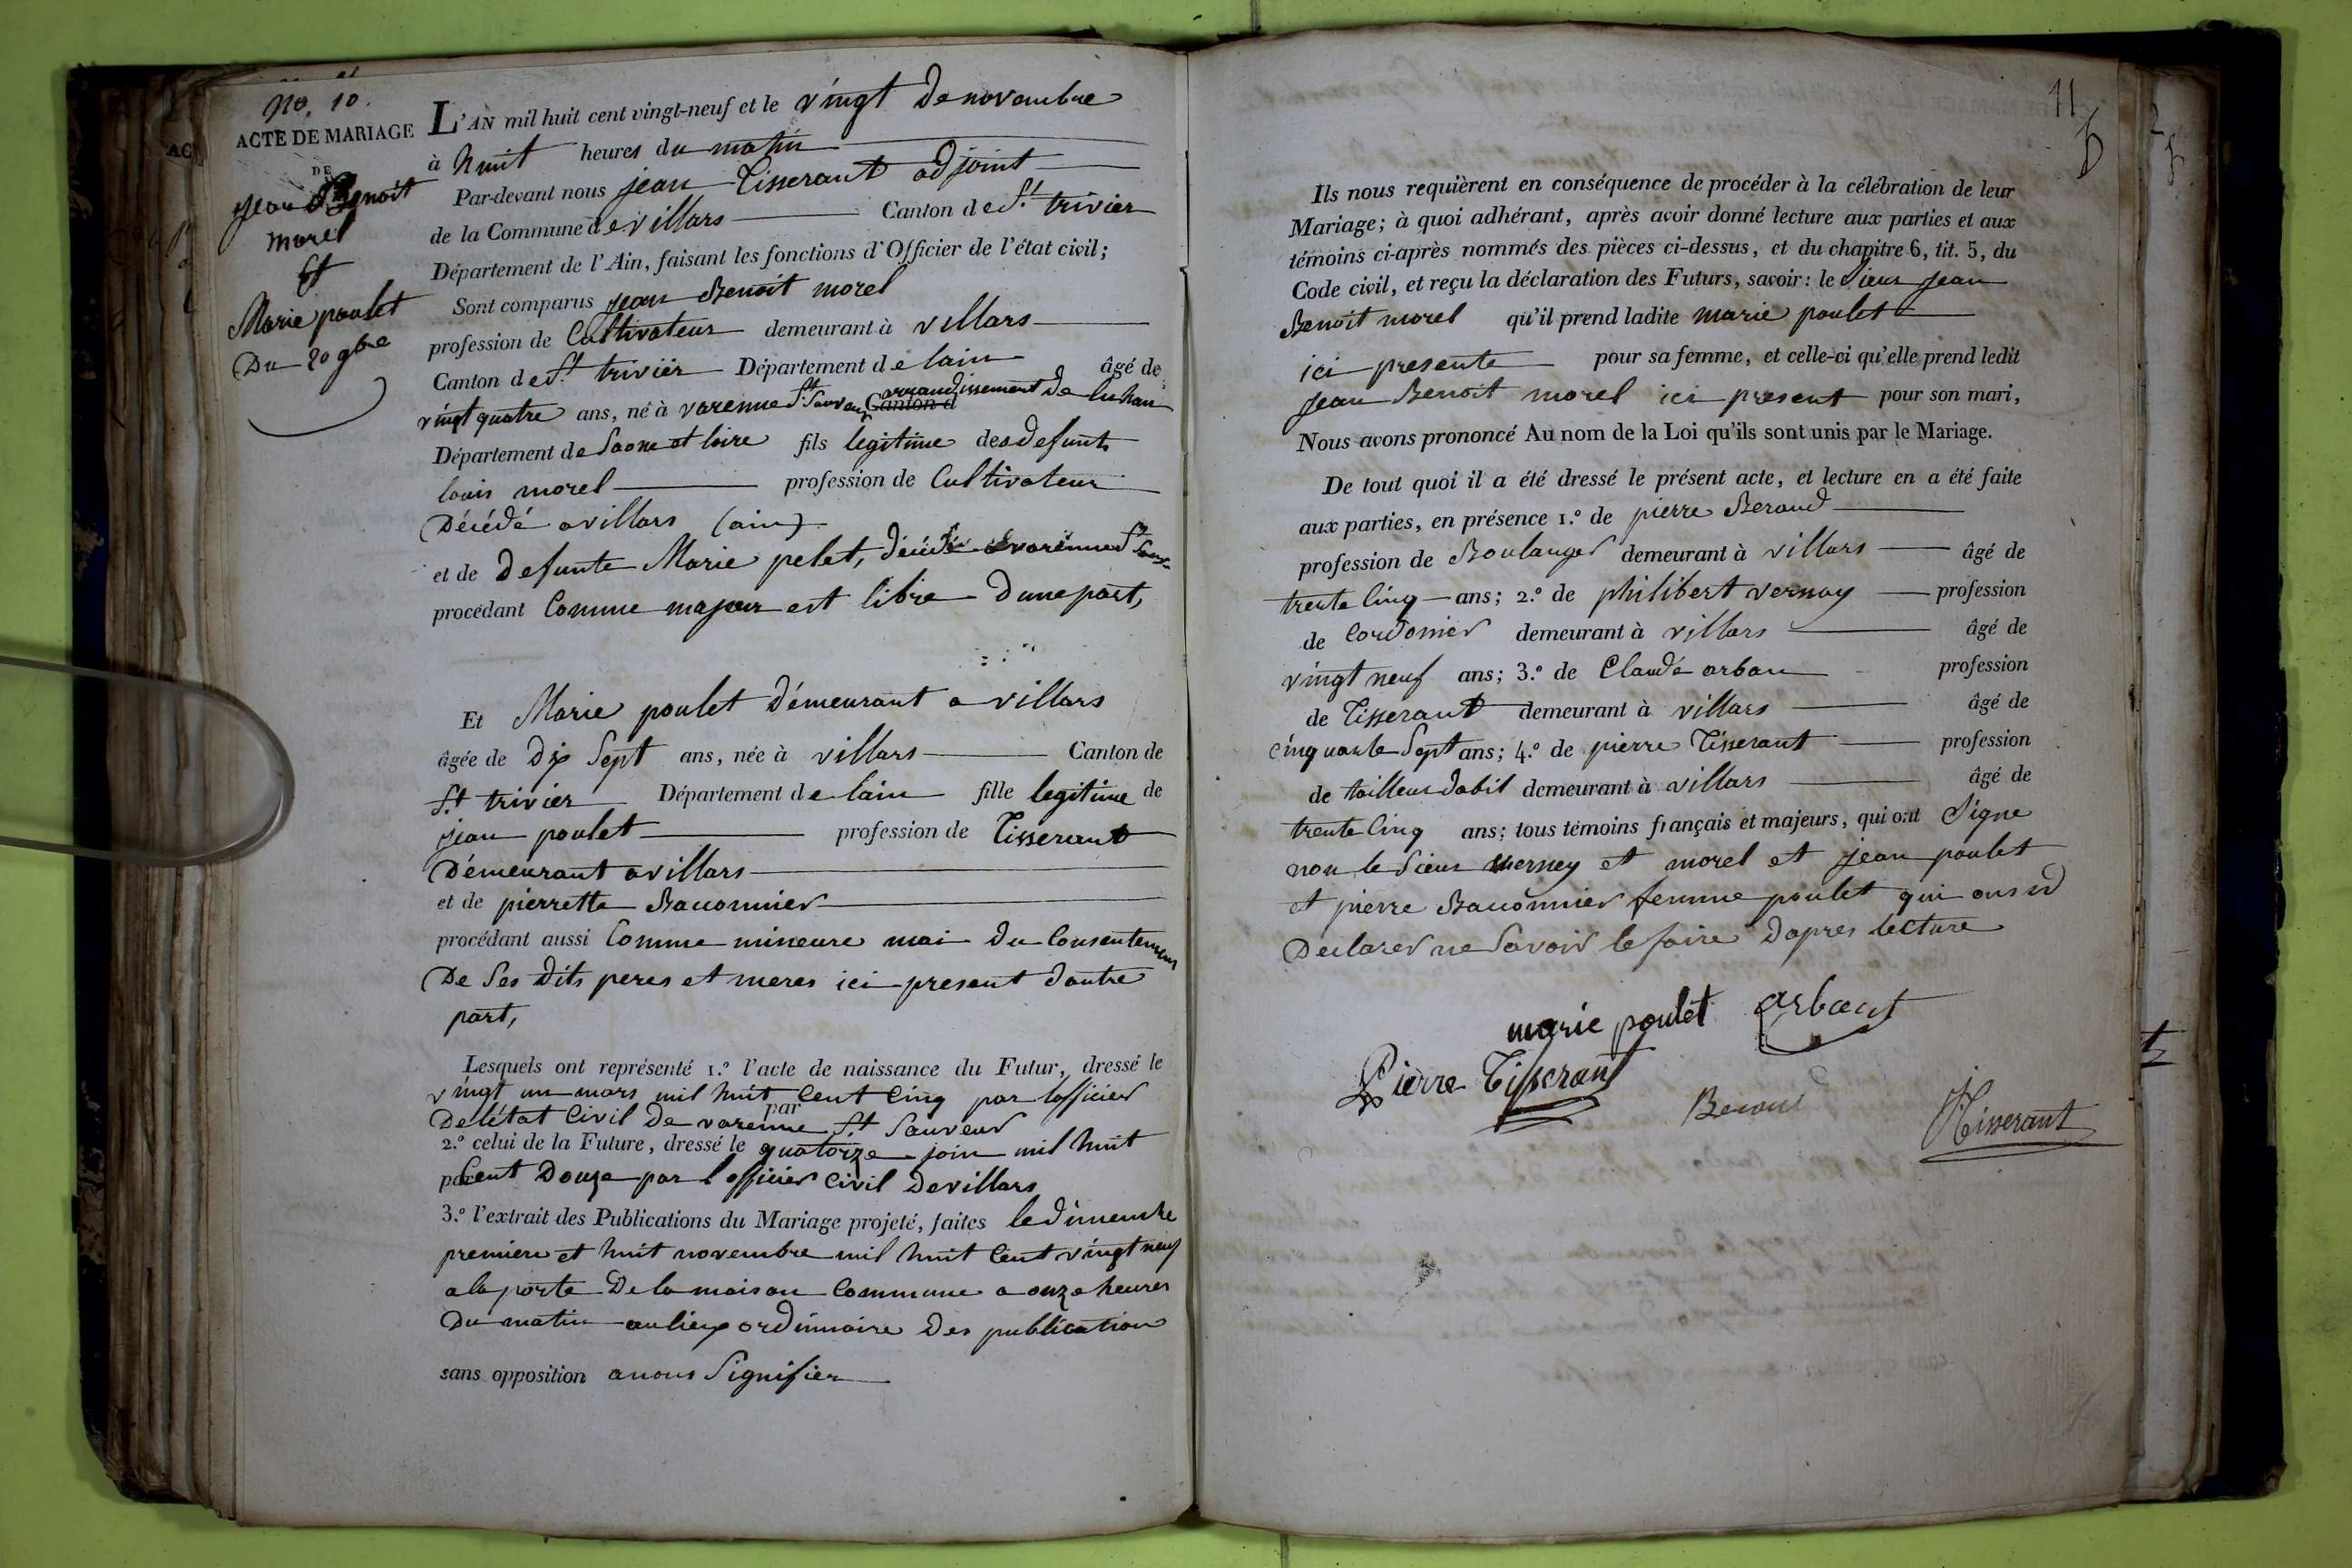 No. 10.
ACTE DE MARIAGE
DE
Jean Benoit
morel
Et
Marie poulet
Du 20 9bre
L'AN mil huit cent vingt-neuf et le vingt de novembre
à huit heures du matin
Par-devant nous jean Tisserant adjoint
de la Commune de villars Canton de St. trivier
Département de l'Ain, faisant les fonctions d'Officier de l'état civil;
Sont comparus jean Benoit morel
profession de Cultivateur demeurant à villars
Canton de St. trivier Département de lain âgé de
vingt quatre ans, né à varenne St. Sauveur Canton d arrandissement de luhan
Département de Saone et loire fils legitime des defunt
louis morel profession de Cultivateur
Décédé a villars (ain)
et de defunte Marie pelet, décédé a varenne St. Sauv
procédant Comme majeur et libre dune part,
Et Marie poulet Démeurant a villars
âgée de Dix Sept ans, née à villars Canton de
St trivier Département de lain fille legitime de
jean poulet profession de Tisserant
Démeurant a villars
et de pierrette Bauonnier
procédant aussi Comme mineure mai du Consentement
De Ses dits peres et meres ici present dautre
part,
Lesquels ont représenté 1.º l'acte de naissance du Futur, dressé le
vingt un mars mil huit Cent Cinq par lofficier
De létat Civil De varenne St Sauveur
par
2.º celui de la Future, dressé le quatorze join mil huit
par Cent Douze par l officier Civil De villars
3.º l'extrait des Publications du Mariage projeté, faites le dimenche
premiere et huit novembre mil huit Cent vingt neuf
a la porte De la maison Commune a onze heures
Du matin au lieux ordinnaire Des publication
sans opposition a nous Signifier
11
Ils nous requièrent en conséquence de procéder à la célébration de leur
Mariage; à quoi adhérant, après avoir donné lecture aux parties et aux
témoins ci-après nommés des pièces ci-dessus, et du chapitre 6, tit. 5, du
Code civil, et reçu la déclaration des Futurs, savoir: le Sieur Jean
Benoit morel qu'il prend ladite marie poulet
ici presente pour sa femme, et celle-ci qu'elle prend ledit
Jean Benoit morel ici present pour son mari,
Nous avons prononcé Au nom de la Loi qu'ils sont unis par le Mariage.
De tout quoi il a été dressé le présent acte, et lecture en a été faite
aux parties, en présence 1.º de pierre Beraud
profession de Boulanger demeurant à villars âgé de
trente Cinq ans; 2.º de philibert vernay profession
de Cordonier demeurant à villars âgé de
vingt neuf ans; 3.º de Claude arban profession
de Tisserant demeurant à villars âgé de
cinquante Sept ans; 4.º de pierre Tisserant profession
de tailleur dabil demeurant à villars âgé de
trente Cinq ans; tous témoins français et majeurs, qui ont Signe
non le Sieur verney et morel et jean poulet
et pierre Bauonnier femme poulet qui ons
Declarer ne Savoir le faire dapres lecture
marie poulet arbant
Pierre Tisserant
Beraud
Tisserant